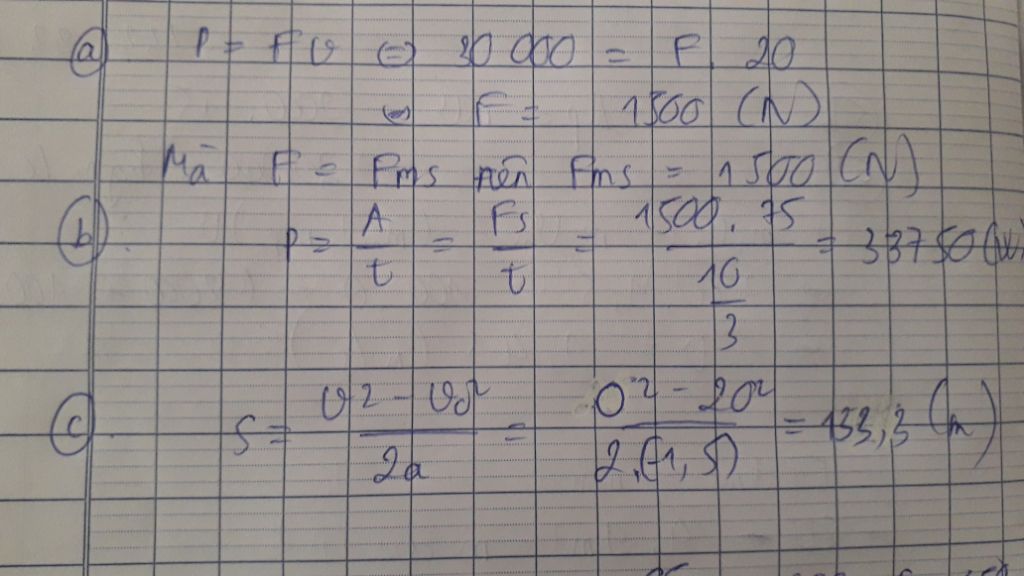 a) P = Fv ⇔ 30 000 = F. 20
⇔ F = 1500 (N)
Mà F = Fms nên Fms = 1500 (N)
b) P = A/t = Fs/t = (1500. 75)/(10/3) = 33750 (W)
c) S = (v² - v₀²)/2a = (0² - 20²)/(2.(-1,5)) = 133,3 (m)